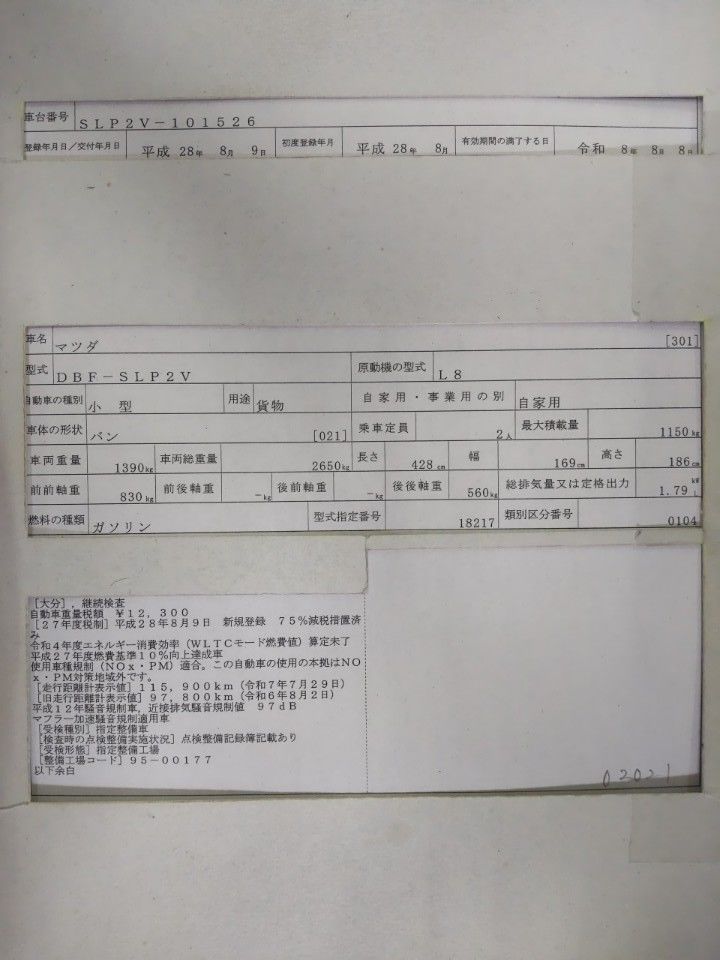 車台番号 SLP2V-101526
登録年月日/交付年月日 平成 28年 8月 9日 初度登録年月 平成 28年 8月 有効期間の満了する日 令和 8年 8月 8日
車名 マツダ [301]
型式 DBF-SLP2V 原動機の型式 L8
自動車の種別 小 型 用途 貨物 自家用・事業用の別 自家用
車体の形状 バン [021] 乗車定員 2人 最大積載量 1150kg
車両重量 1390kg 車両総重量 2650kg 長さ 428cm 幅 169cm 高さ 186cm
前前軸重 830kg 前後軸重 -kg 後前軸重 -kg 後後軸重 560kg 総排気量又は定格出力 1.79 kW L
燃料の種類 ガソリン 型式指定番号 18217 類別区分番号 0104
[大分],継続検査
自動車重量税額 ¥12,300
[27年度税制]平成28年8月9日 新規登録 75%減税措置済
み
令和4年度エネルギー消費効率(WLTCモード燃費値)算定未了
平成27年度燃費基準10%向上達成車
使用車種規制(NOx・PM)適合。この自動車の使用の本拠はNO
x・PM対策地域外です。
[走行距離計表示値]115,900km(令和7年7月29日)
[旧走行距離計表示値]97,800km(令和6年8月2日)
平成12年騒音規制車,近接排気騒音規制値 97dB
マフラー加速騒音規制適用車
[受検種別]指定整備車
[検査時の点検整備実施状況]点検整備記録簿記載あり
[受検形態]指定整備工場
[整備工場コード]95-00177
以下余白
02021